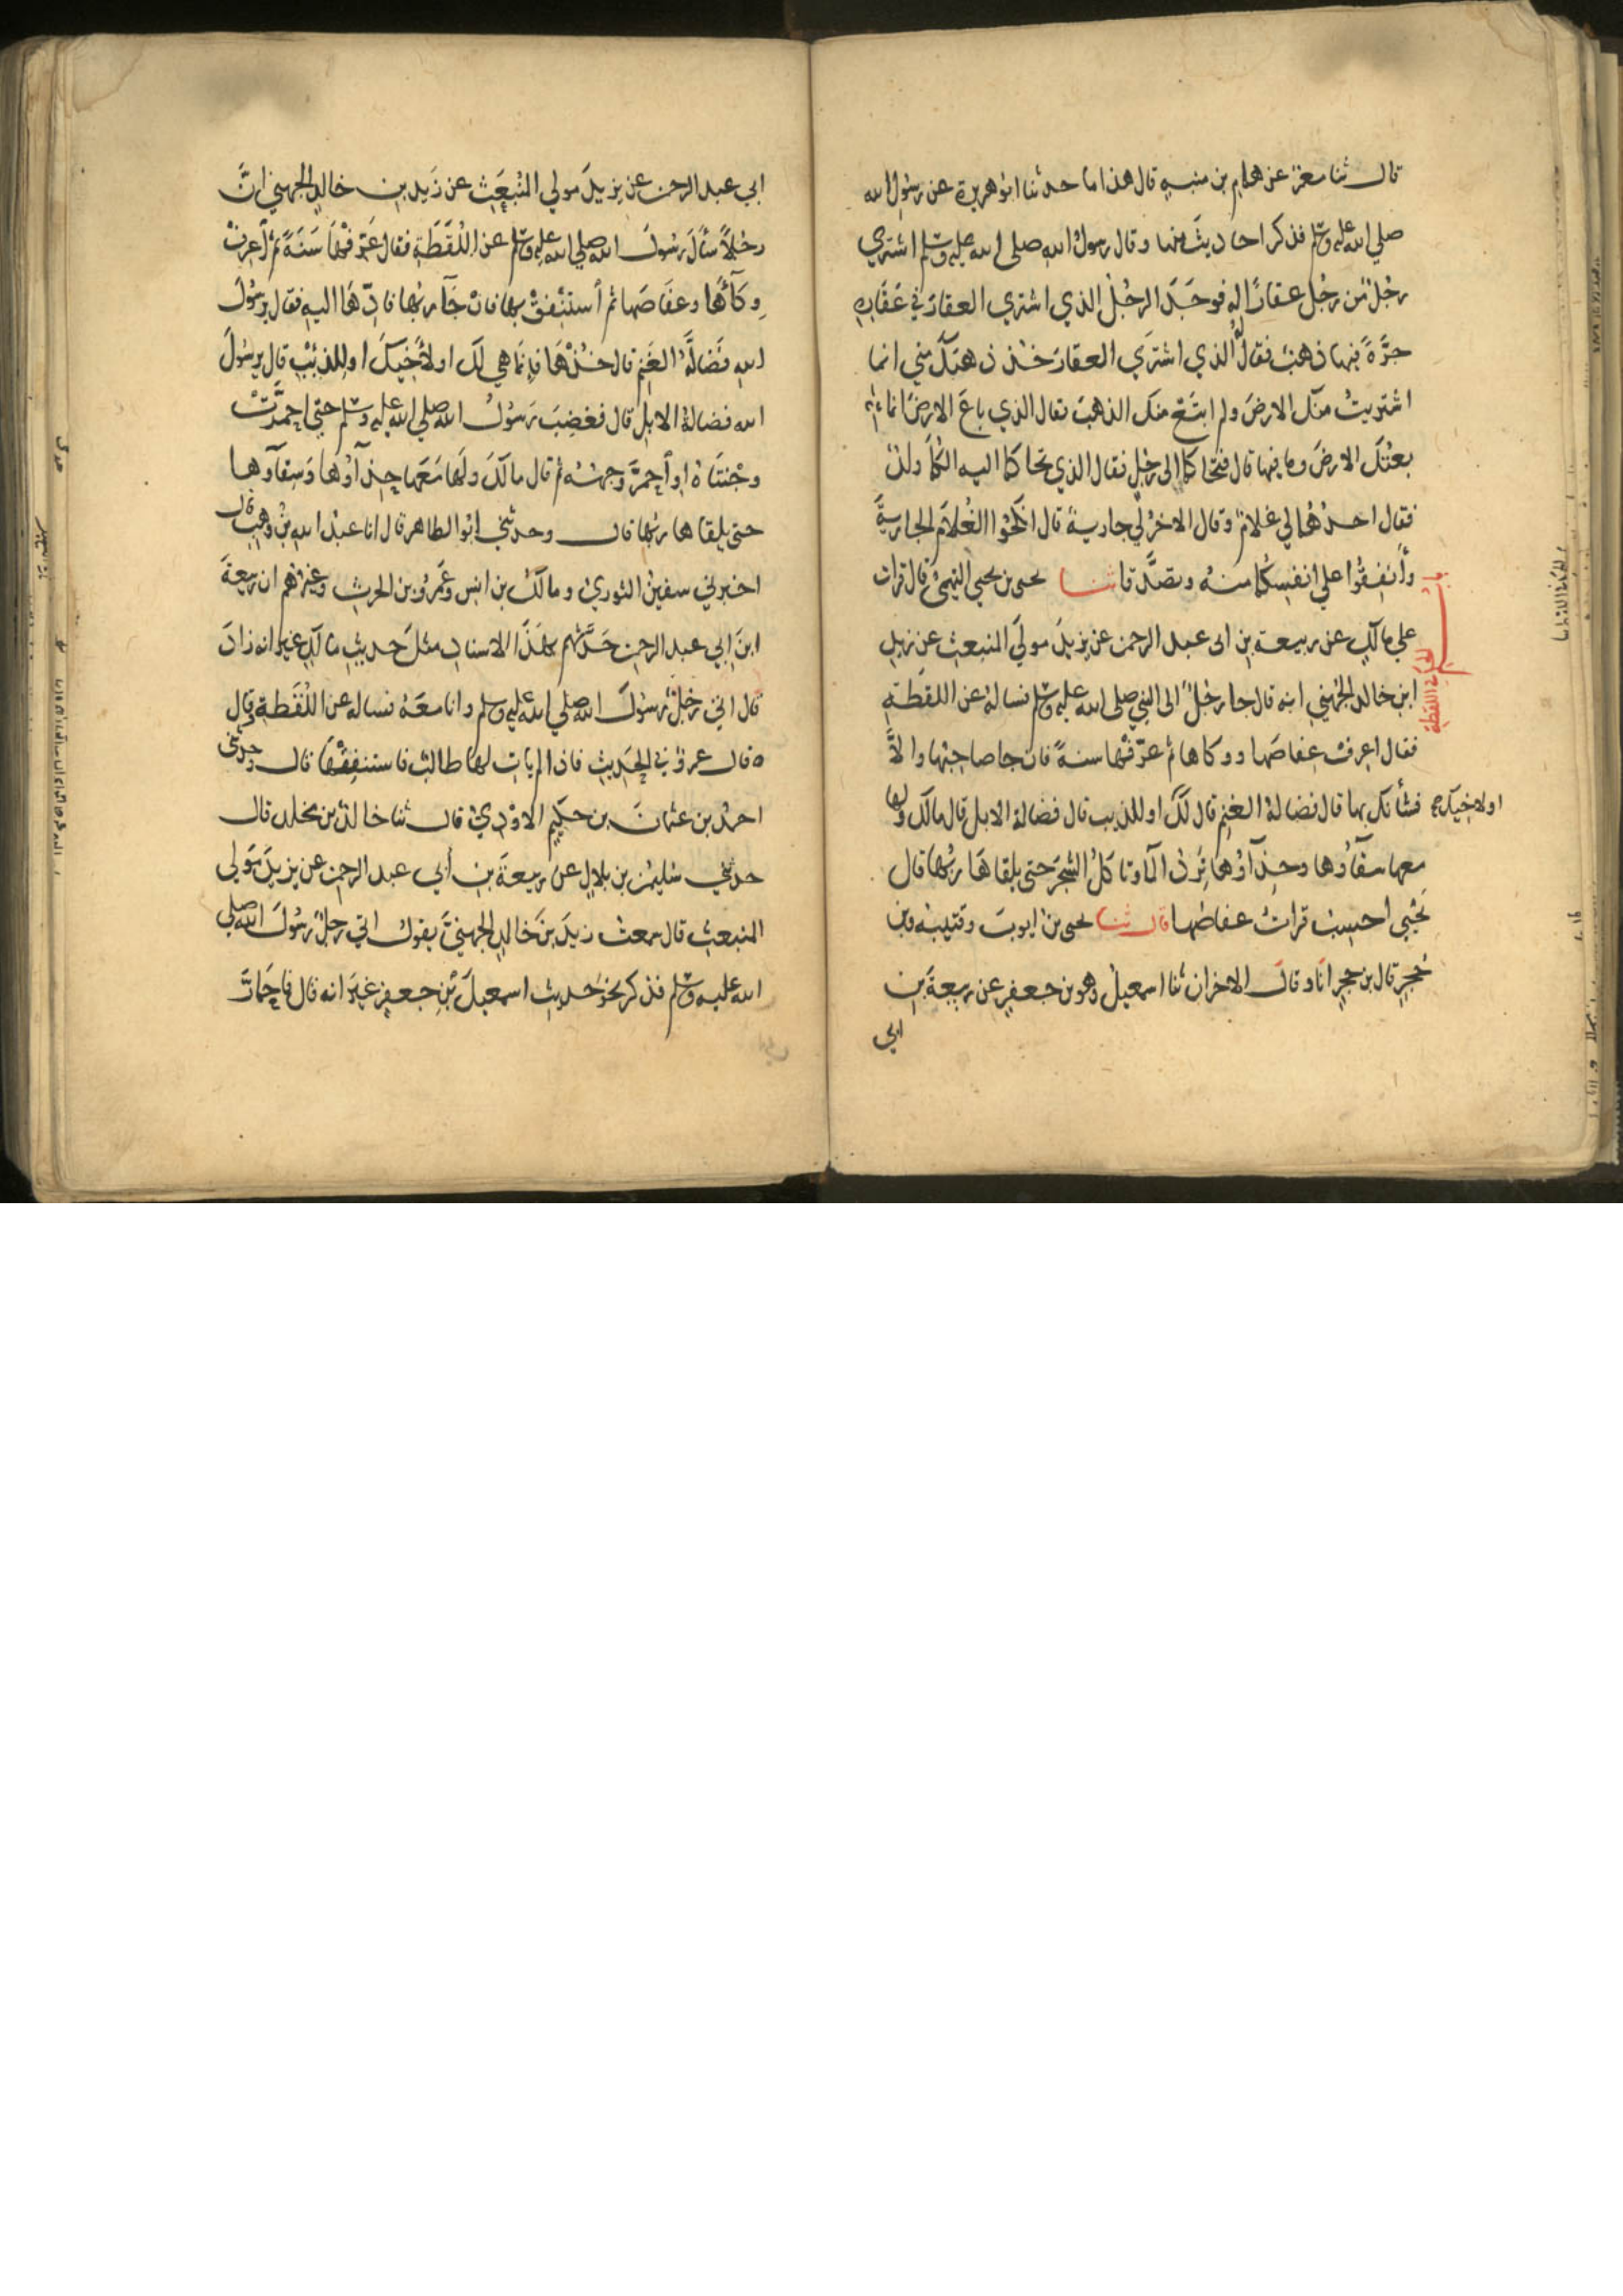 قال ثنا معمر عن همام بن منبه قال هذا ما حدثنا ابو هريرة عن رسول الله
صلي الله عليه وسلم فذكر احاديث منها وقال رسول الله صلى الله عليه وسلم اشتري
رجل من رجل عقارًا له فوجد الرجل الذي اشتري العقار في عقاره
جرَّةً فيها ذهب فقال له الذي اشترَي العقار خذ ذهبك مني انما
اشتريت منك الارض ولم ابتع منك الذهب فقال الذي باع الارض انما
بعتك الارض وما فيها قال فتحاكما الى رجل فقال الذي تحاكما اليه الكما ولد
فقال احدهما لي غلام وقال الاخر لي جارية قال انكحوا الغلام الجارية
وأنفقوا علي انفسكما منه وتصدقا ثنا يحيى بن يحيي التميمي قال قرات
علي مالك عن ربيعة بن ابى عبد الرحمن عن يزيد مولي المنبعث عن زيد
ابن خالد الجهني انه قال جا رجل الى النبي صلى الله عليه وسلم فساله عن اللقطة
فقال اعرف عفاصها ووكاها ثم عرّفها سنةً فان جا صاحبها والاَّ
فشأنك بها قال فضالة الغنم قال لك او للذيب قال فضالة الابل قال مالك ولها
اولاخيك
معها سقاؤها وحذاؤها ترد الما وتاكل الشجر حتى يلقاها ربها قال
يحيي احسب قرات عفاصها قال ثنا يحيى بن ايوب وقتيبة وبن
حجر قال بن حجر انا وقال الاخران ثنا اسمعيل وهو بن جعفر عن ربيعة بن
ابي
ابي عبد الرحمن عن يزيد مولي المنبعث عن زيد بن خالد الجهني انَّ
رجلاً سأل رسول الله صلي الله عليه وسلم عن اللقطة فقال عرّفها سنةً ثم اعرف
وكآها وعفاصها ثم استنفق بها فان جآ ربها فادّها اليه فقال يرسول
الله فضالّة الغنم قال خذها فانما هي لك او لأخيك او للذئب قال يرسول
الله فضالة الابل قال فغضب رسول الله صلي الله عليه وسلم حتي احمرّت
وجنتاه او احمرّ وجهه ثم قال مالك ولها معها حذآؤها وسقآوها
حتى يلقاها ربها قال وحدثني ابو الطاهر قال انا عبد الله بن وهب قال
اخبرني سفين الثوري ومالك بن انس وعمرو بن الحرث وغيرهم ان ربيعة
ابن ابي عبد الرحمن حدثهم بهذا الاسناد مثل حديث مالك غير انه زاد
قال اتي رجل رسول الله صلي الله عليه وسلم وانا معه فساله عن اللقطة وقال
قال عمرو في الحديث فاذا لم يات لها طالب فاستنفقها قال وحدثني
احمد بن عثمان بن حكيم الاودي قال ثنا خالد بن مخلد قال
حدثني سليمن بن بلال عن ربيعة بن أبي عبد الرحمن عن يزيد مولي
المنبعث قال سمعت زيد بن خالد الجهني يقول اتي رجل رسول الله صلي
الله عليه وسلم فذكر نحو حديث اسمعيل بن جعفر غير انه قال فاحمارّ